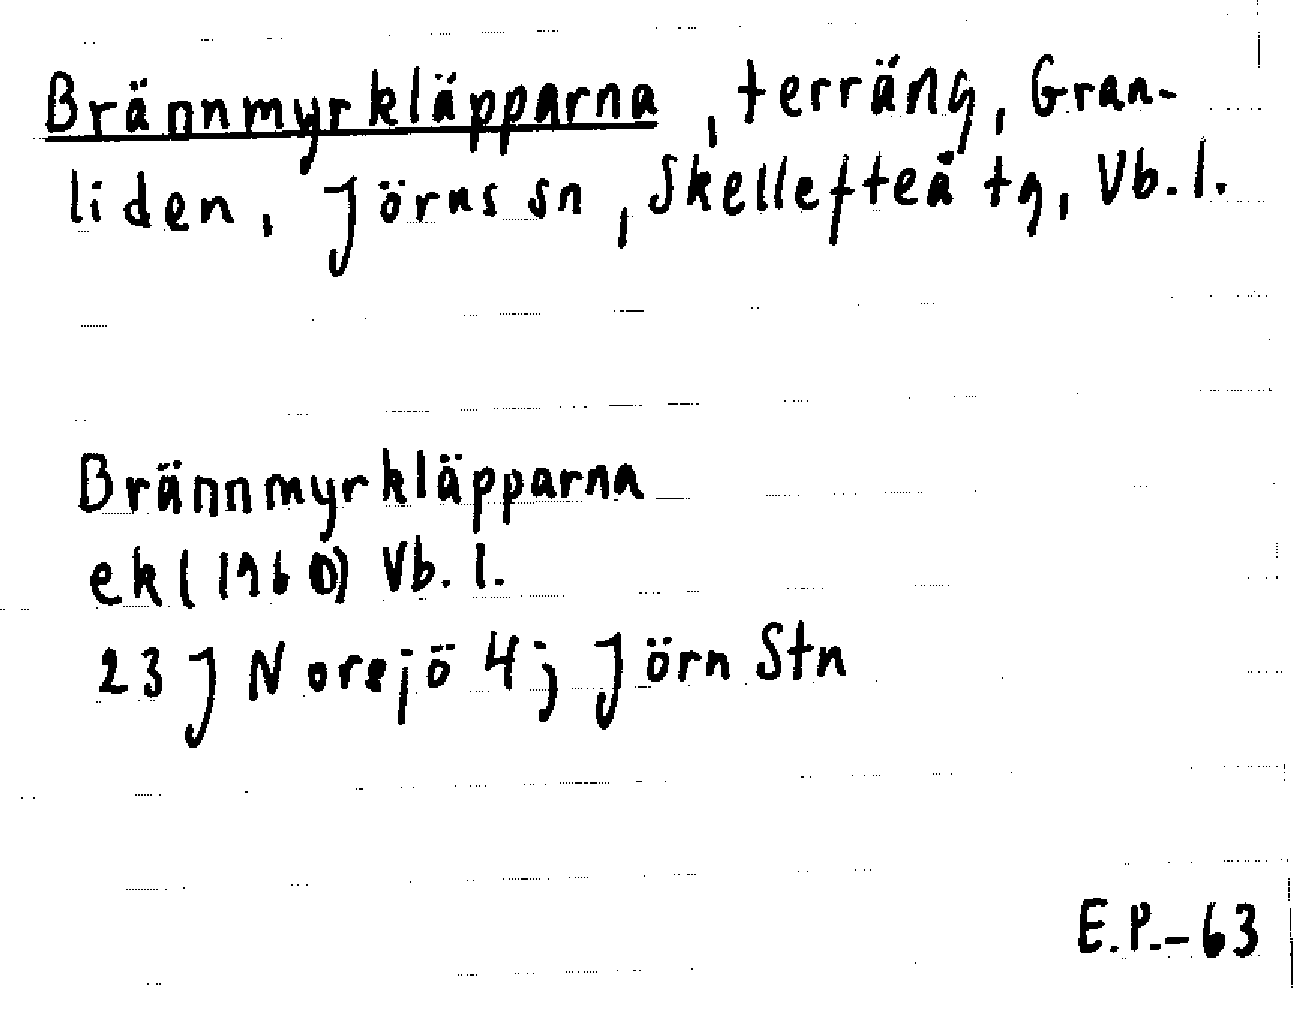 Brännmyrkläpparna, terräng, Gran-
liden, Jörns sn, Skellefteå tg, Vb. l.
Brännmyrkläpparna
ek (1960) Vb. l.
23 J Norejö 4j Jörn Stn
E.P.-63